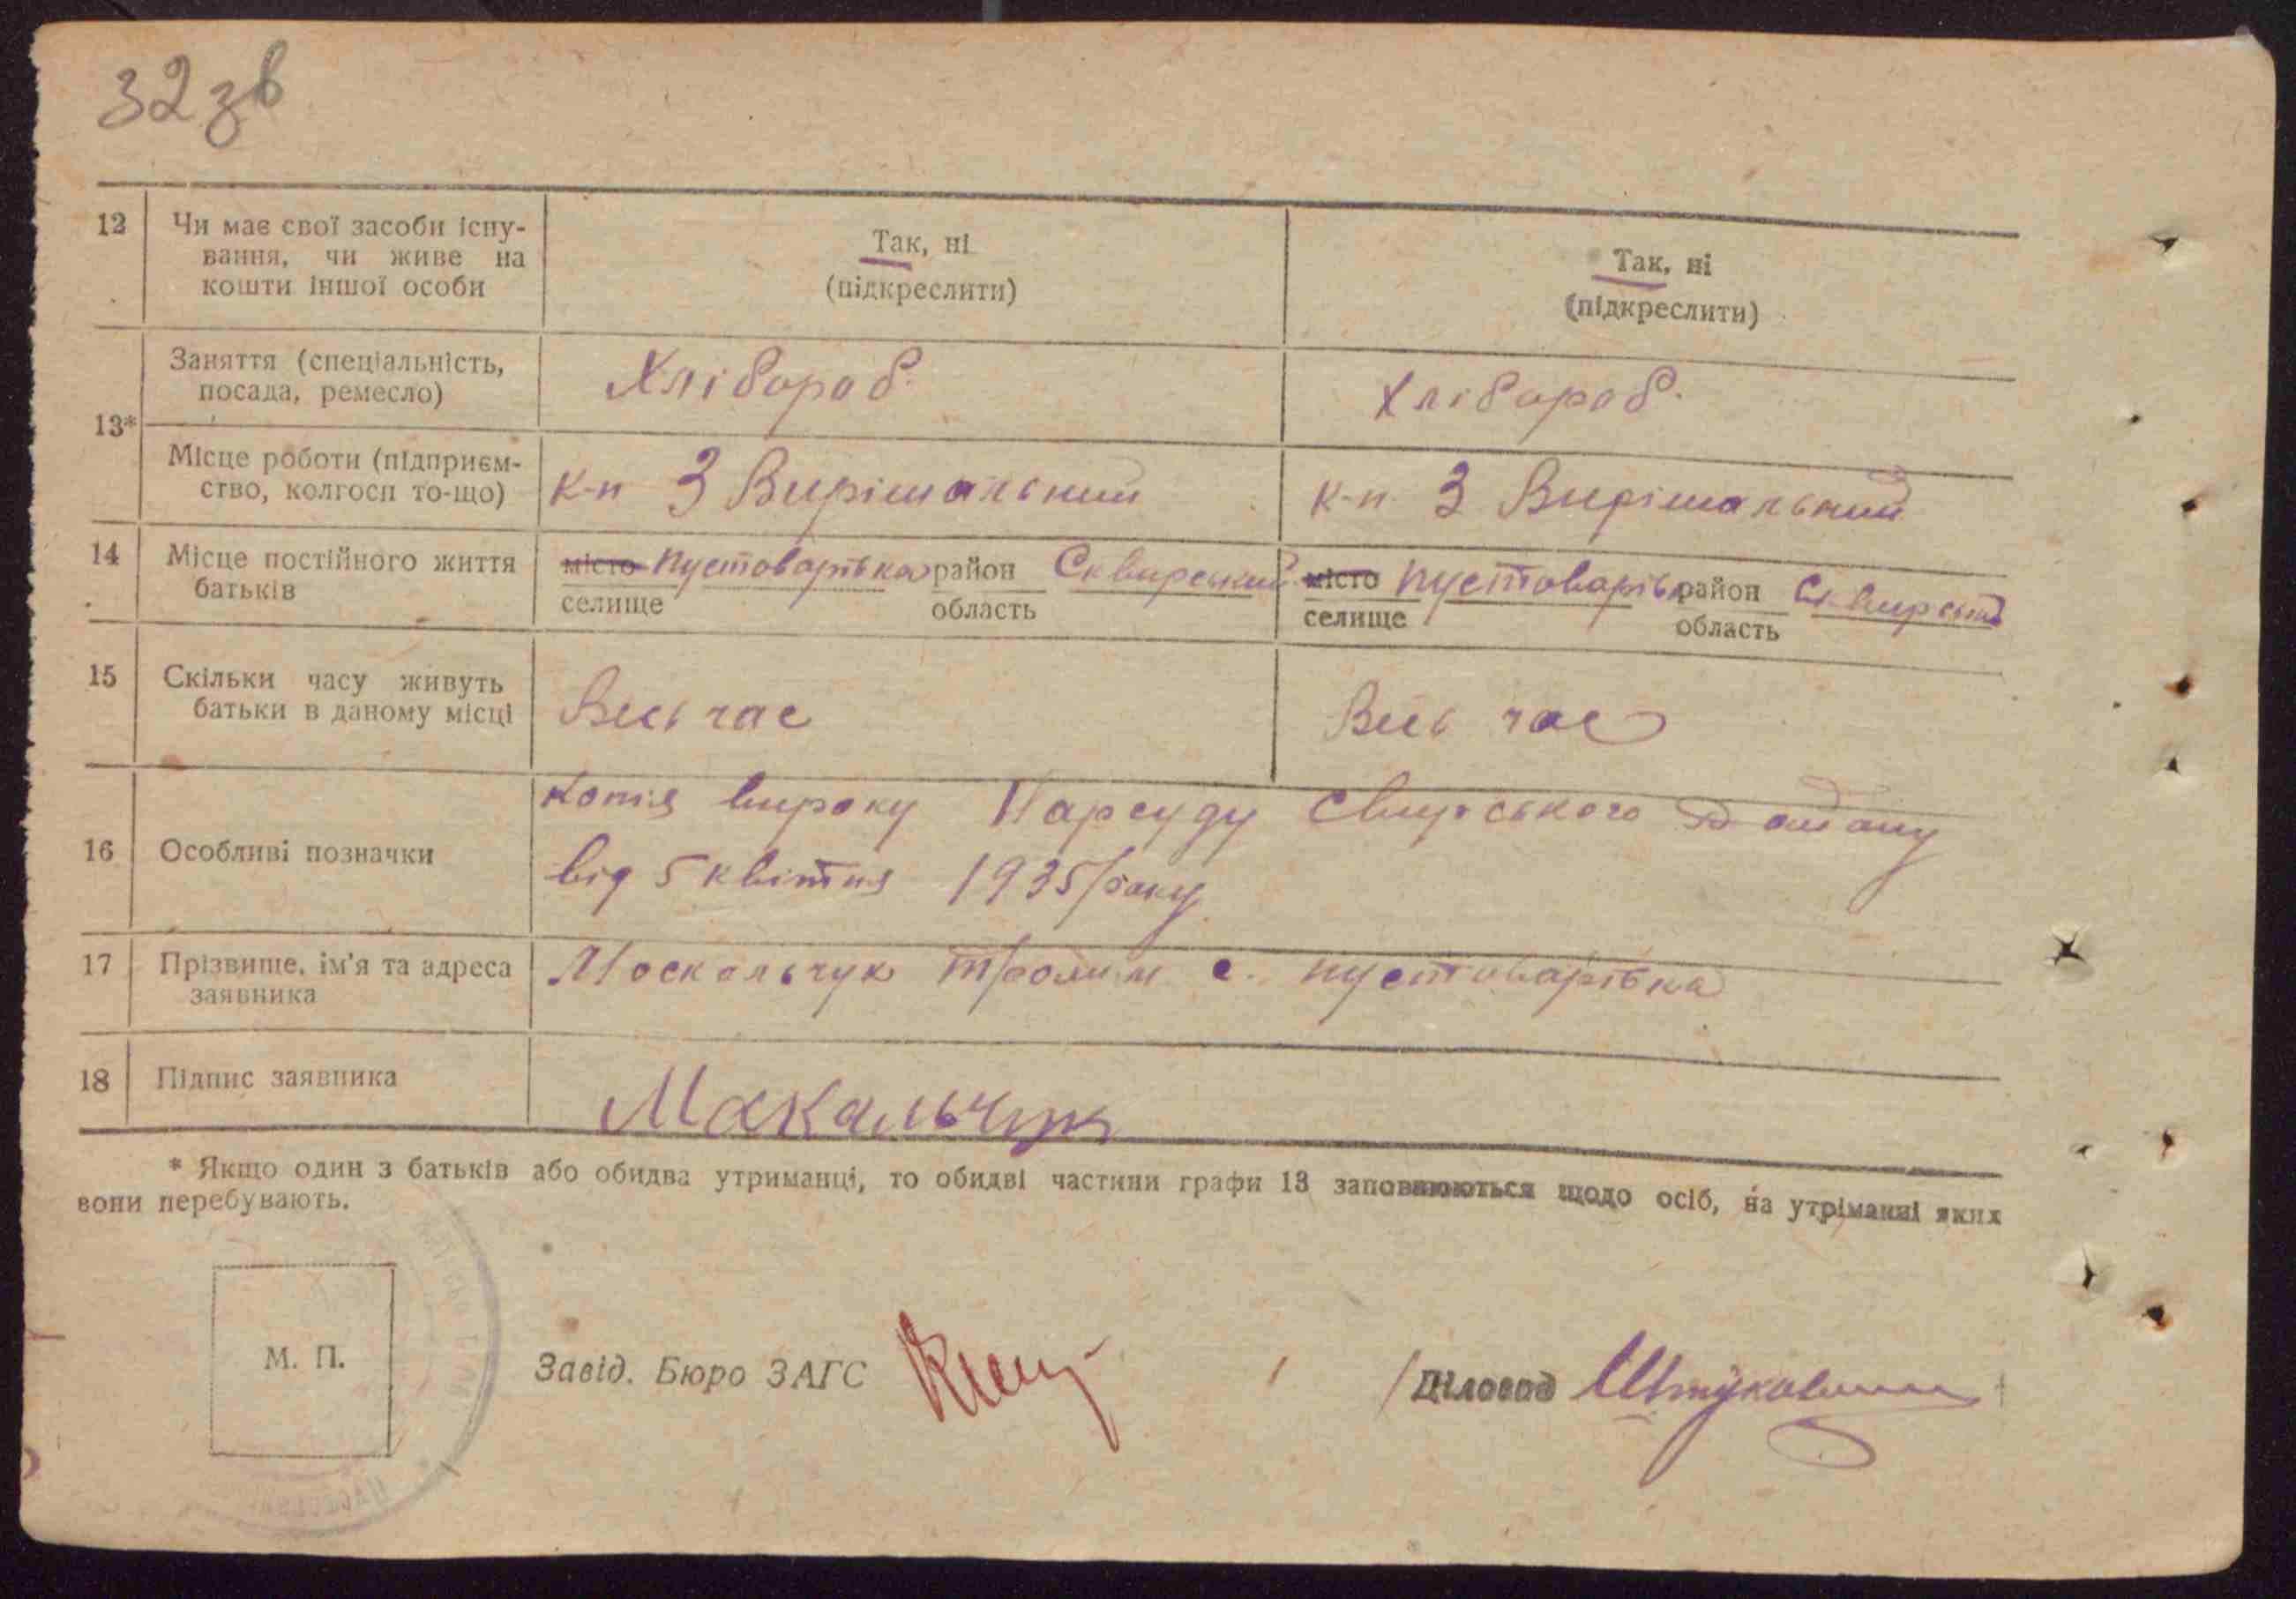 32 зв
12 Чи має свої засоби існу- Так, ні Так, ні
вання, чи живе на (підкреслити) (підкреслити)
кошти іншої особи
13* Заняття (спеціальність, Хлібороб. Хлібороб.
посада, ремесло)
Місце роботи (підприєм- к-п 3 Вирішальний к-п 3 Вирішальний
ство, колгосп то-що)
14 Місце постійного життя місто Пустоварівка район Сквирський місто Пустоварівка район Сквирський
батьків селище область селище область
15 Скільки часу живуть Весь час Весь час
батьки в даному місці
16 Особливі позначки Копія вироку Нарсуду Свирського
від 5 квітня 1935 року
17 Прізвище, ім'я та адреса Москальчук с. Пустоварівка
заявника
18 Підпис заявника Макальчук
* Якщо один з батьків або обидва утриманці, то обидві частини графи 13 заповнюються щодо осіб, на утріманні яких
вони перебувають.
М. П. Завід. Бюро ЗАГС Діловод